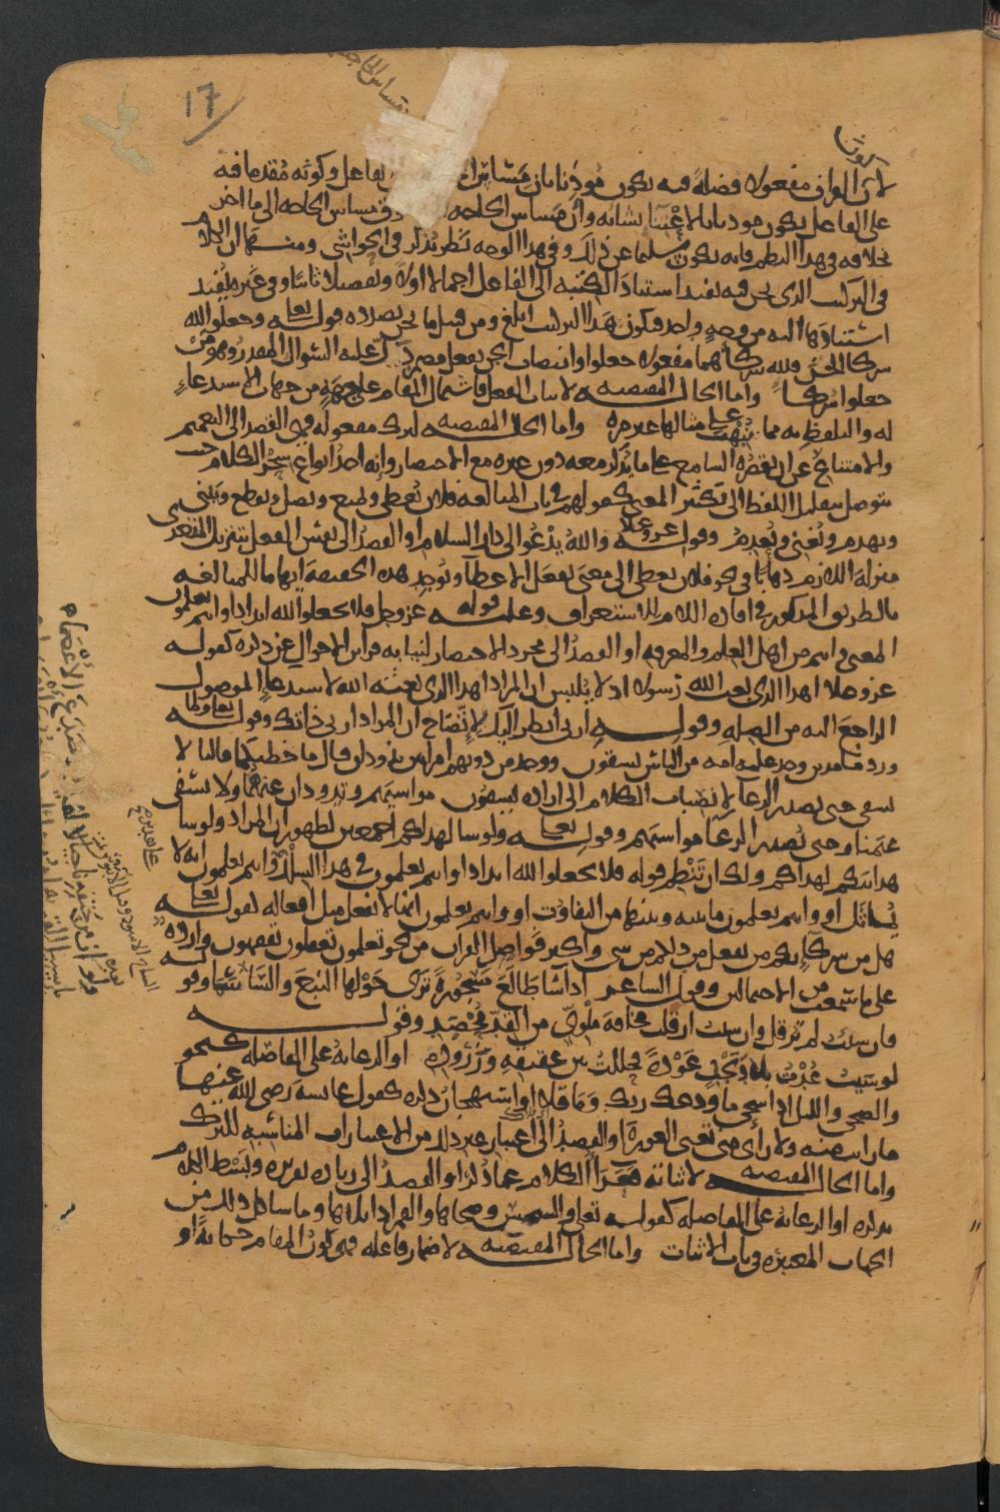 17
لان الواقع مفعولا فضلة فيه يكون موذنا بان مساس الفاعل وكونه مقدما فيه
على الفاعل يكون موذنا بالاعتنا بشانه وان مساس الحاجه فوق مساس الحاجه الى ما اخر
بخلافه في هذا النظم فانه يكون سليما عن ذلك وفي هذا الوجه نظر يذكر في الحواشي ومنها ان الكلام
في التركيب الذي نحن فيه يفيد استناد الكنيه الى الفاعل اجمالا اولا وتفصيلا ثانيا وفي غيره يفيد
استنادها اليه من وجه واحد فيكون هذا التركيب ابلغ ومن قبيل ما نحن بصدده قوله تعالى وجعلوا لله
شركا الجن فلله شركا هما مفعولا جعلوا وانتصاب الجن بفعل مضمر دل عليه السوال المقدر وهو من
جعلوا شركا واما الحاله المقتضيه لاثبات الفعل فاشتمال المقام على جهة من جهات الاستدعاء
له والتلفظ به مما نبهت على مثالها غير مره واما الحاله المقتضيه لترك مفعوله فهي القصد الى التعميم
والامتناع عن ان يقصره السامع على ما يذكر معه دون غيره مع الاختصار وانه احد انواع سحر الكلام حيث
يتوصل بتقليل اللفظ الى تكثير المعنى كقولهم في باب المبالغه فلان يعطي ويمنع ويصل ويقطع ويبني
ويهدم ويغني ويعدم وقوله عز وعلا والله يدعو الى دار السلام او القصد الى نفس الفعل بتنزيل المتعدي
منزلة اللازم ذهابا في نحو فلان يعطي الى معنى يفعل الاعطا ويوجد هذه الحقيقة ايهاما للمبالغه
بالطريق المذكور في افاده اللام للاستغراق وعليه قوله عز وجل فلا تجعلوا لله اندادا وانتم تعلمون
المعنى وانتم من اهل العلم والمعرفه او القصد الى مجرد الاختصار لنيابه قراين الاحوال عن ذكره كقوله
عز وعلا اهذا الذي بعث الله رسولا اذ لا يلبس ان المراد اهذا الذي بعثه الله لاستدعا الموصول
الراجع اليه من الصله وقوله ارني انظر اليك لاتضاح ان المراد ارني ذاتك وقوله تعالى ولما
ورد ما مدين وجد عليه امه من الناس يسقون ووجد من دونهم امراتين تذودان قال ما خطبكما قالتا لا
نسقي حتى يصدر الرعا لانصباب الكلام الى اراده يسقون مواشيهم وتذودان غنمهما ولا نسقي
غنمنا وحتى يصدر الرعا مواشيهم وقوله تعالى ولو شا لهداكم اجمعين لظهور ان المراد ولو شا
هدايتكم لهداكم ولك ان تنظم قوله فلا تجعلوا لله اندادا وانتم تعلمون في هذا السلك وانتم تعلمون انه لا
يماثل او وانتم تعلمون ما بينه وبينها من التفاوت او وانتم تعلمون انها لا تفعل مثل افعاله كقوله تعالى
هل من شركائكم من يفعل من ذلكم من شي واكثر فواصل القران من نحو تعلمون تعقلون تفقهون وارده
على ما سمعت من الاحتمالين وقول الشاعر اذا شا طالع مسجورة ترى حولها النبع والشاسما وقوله
فان شئت لم ترقل وان شئت ارقلت مخافة ملوي من القد محصد وقوله
لو شيت عدت بلاد نجد عودة فحللت بين عقيقه وزروده او الرعايه على الفاصله كنحو
والضحى والليل اذا سجى ما ودعك ربك وما قلى او استهجان ذكره كقول عايشه رضي الله عنها
ما رايت منه ولا راى مني تعني العورة او القصد الى اعتبار غير ذلك من الاعتبارات المناسبه للترك
واما الحاله المقتضيه لاثباته فعرا الكلام عما ذكر او القصد الى زياده تقريره وبسط الكلام
بذكره او الرعايه على الفاصله كقوله تعالى والشمس وضحاها والقمر اذا تلاها وما شاكل ذلك من
الجهات المعتبره في باب الاثبات واما الحاله المقتضيه لاضمار فاعله فهي كون المقام حكاية او